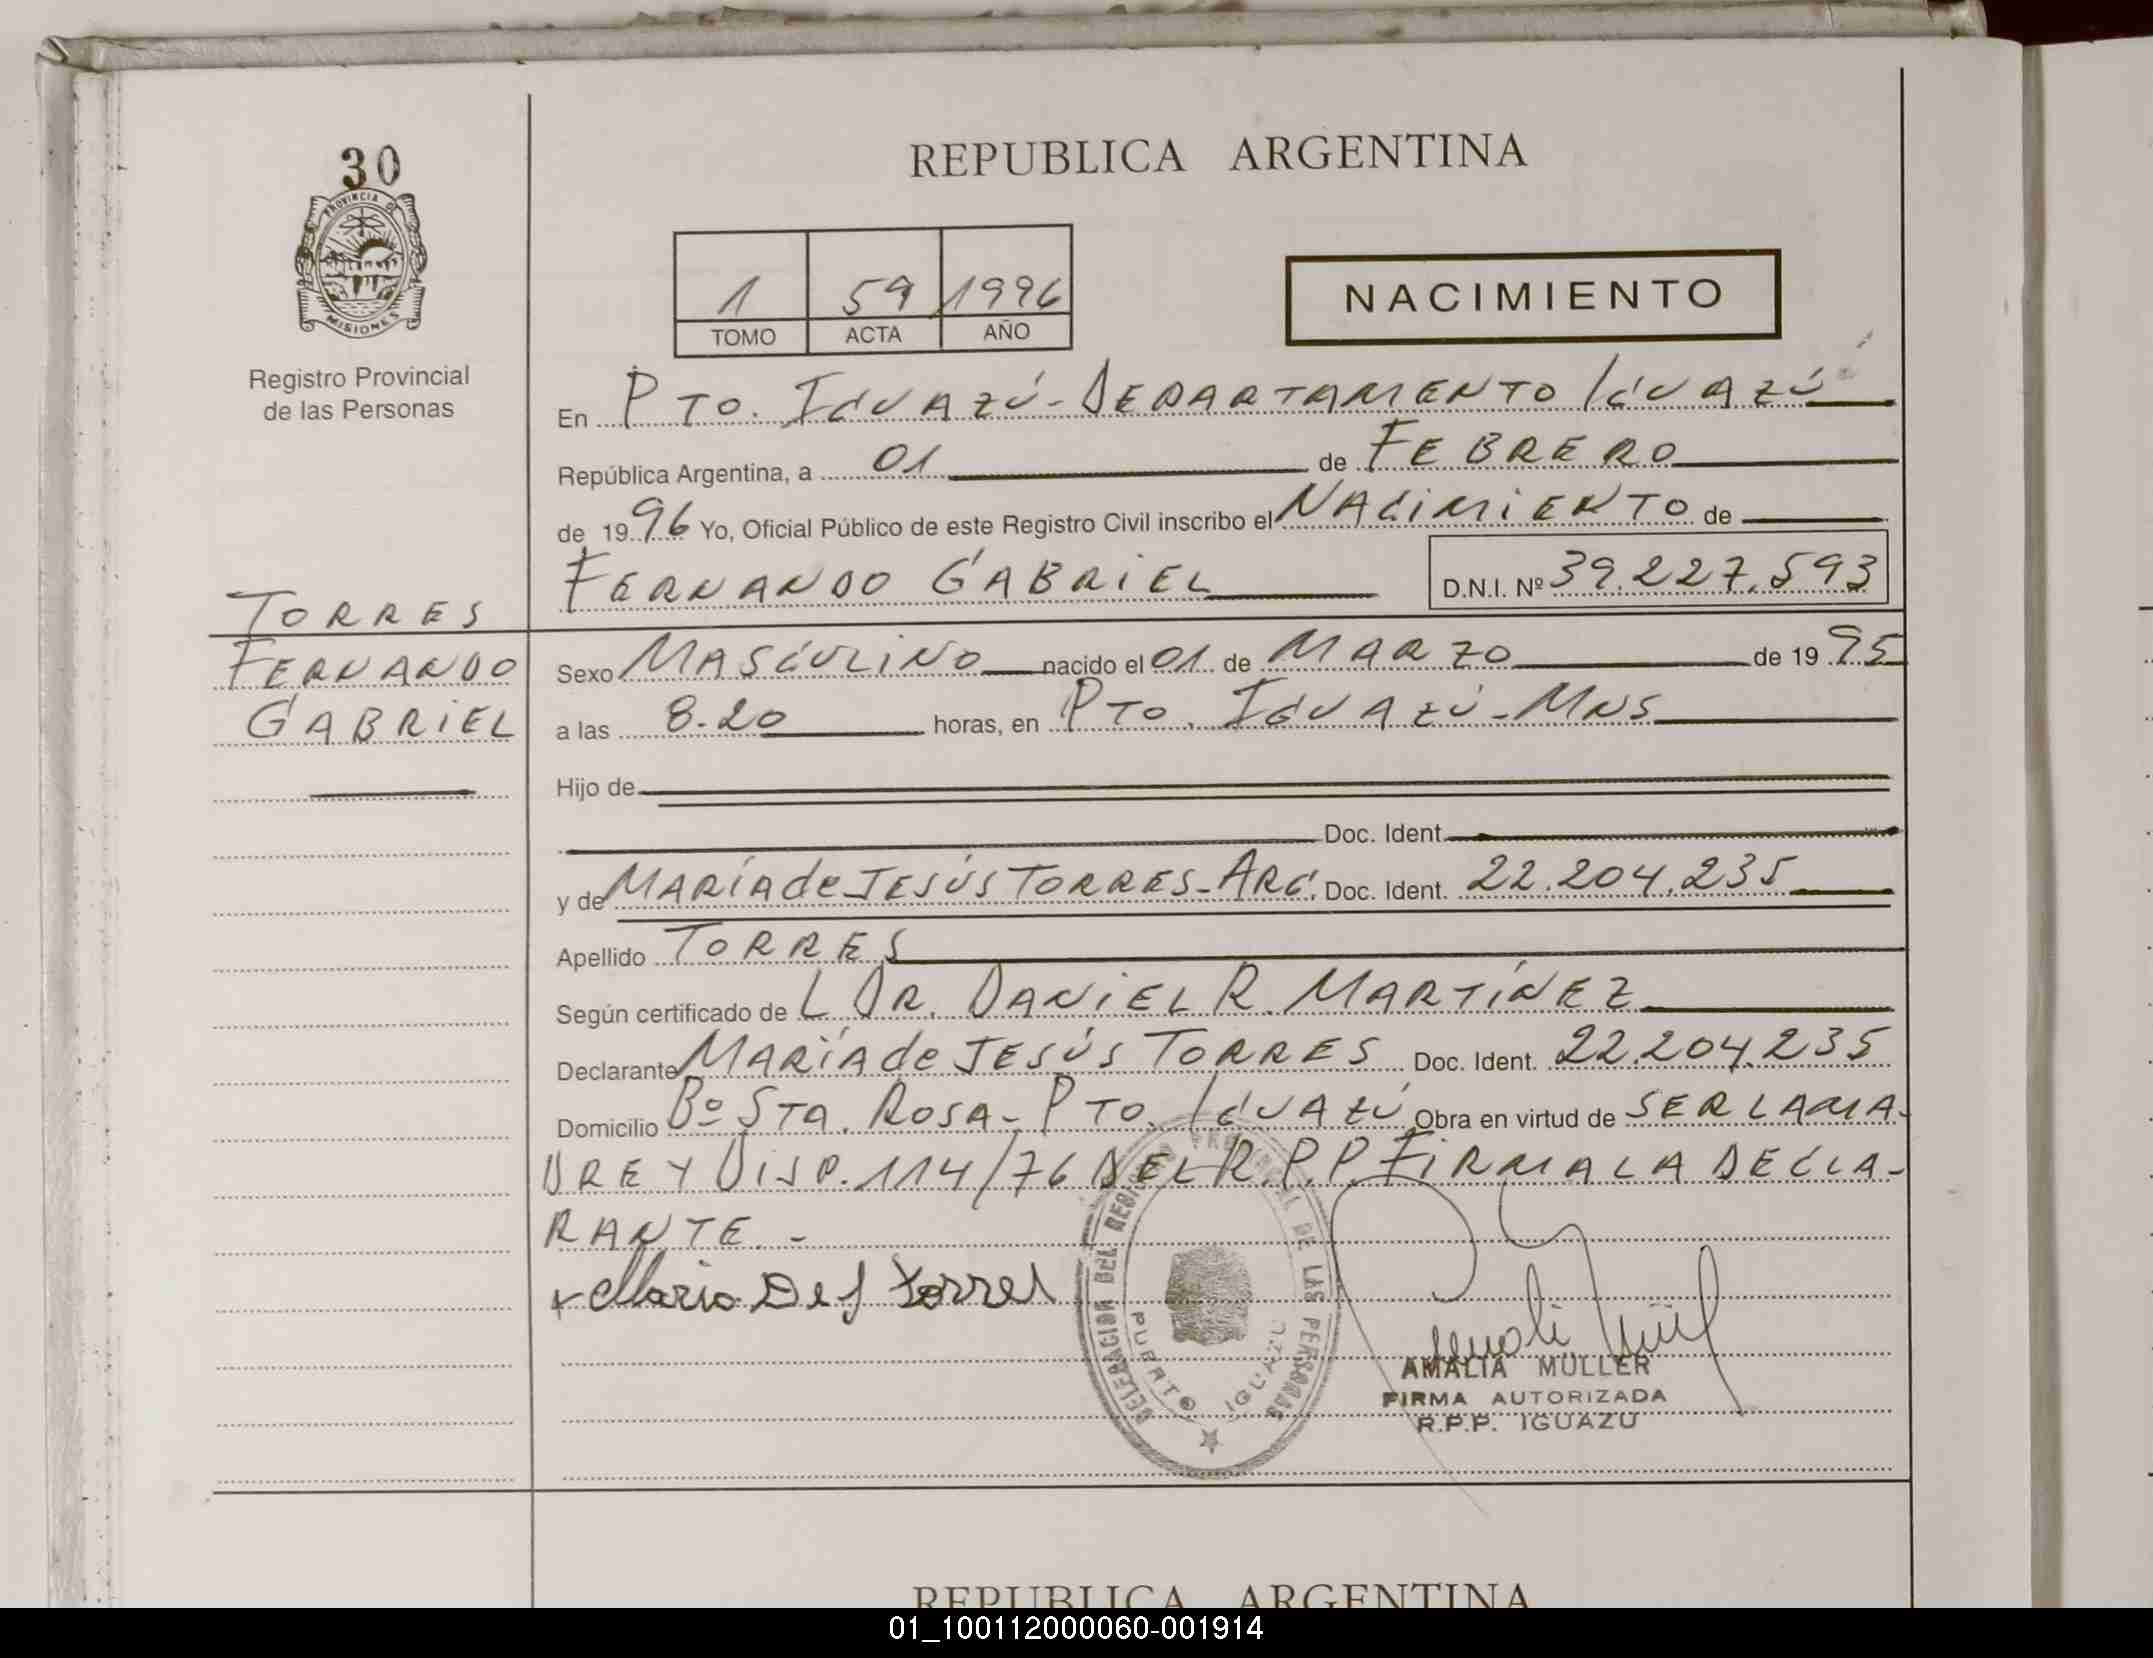 30
PROVINCIA DE
MISIONES
Registro Provincial
de las Personas
REPUBLICA ARGENTINA
1 59 1996
TOMO ACTA AÑO
NACIMIENTO
En PTO. IGUAZÚ - DEPARTAMENTO IGUAZÚ
República Argentina, a 01 de FEBRERO
de 1996 Yo, Oficial Público de este Registro Civil inscribo el NACIMIENTO de
FERNANDO GABRIEL D.N.I. Nº 39.227.593
TORRES
FERNANDO
GABRIEL
Sexo MASCULINO nacido el 01 de MARZO de 1995
a las 8.20 horas, en PTO. IGUAZÚ - MNS
Hijo de
Doc. Ident.
y de MARÍA de JESÚS TORRES - ARG. Doc. Ident. 22.204.235
Apellido TORRES
Según certificado de L DR. DANIEL R. MARTÍNEZ
Declarante MARÍA de JESÚS TORRES Doc. Ident. 22.204.235
Domicilio Bº STA. ROSA - PTO. IGUAZÚ Obra en virtud de SER LA MA-
DRE Y DISP. 114/76 DEL R.P.P. FIRMA LA DECLA-
RANTE. -
Maria De J Torres
DELEGACION DEL REGISTRO PROVINCIAL DE LAS PERSONAS
PUERTO IGUAZU
AMALIA MULLER
FIRMA AUTORIZADA
R.P.P. IGUAZU
REPUBLICA ARGENTINA
01_100112000060-001914